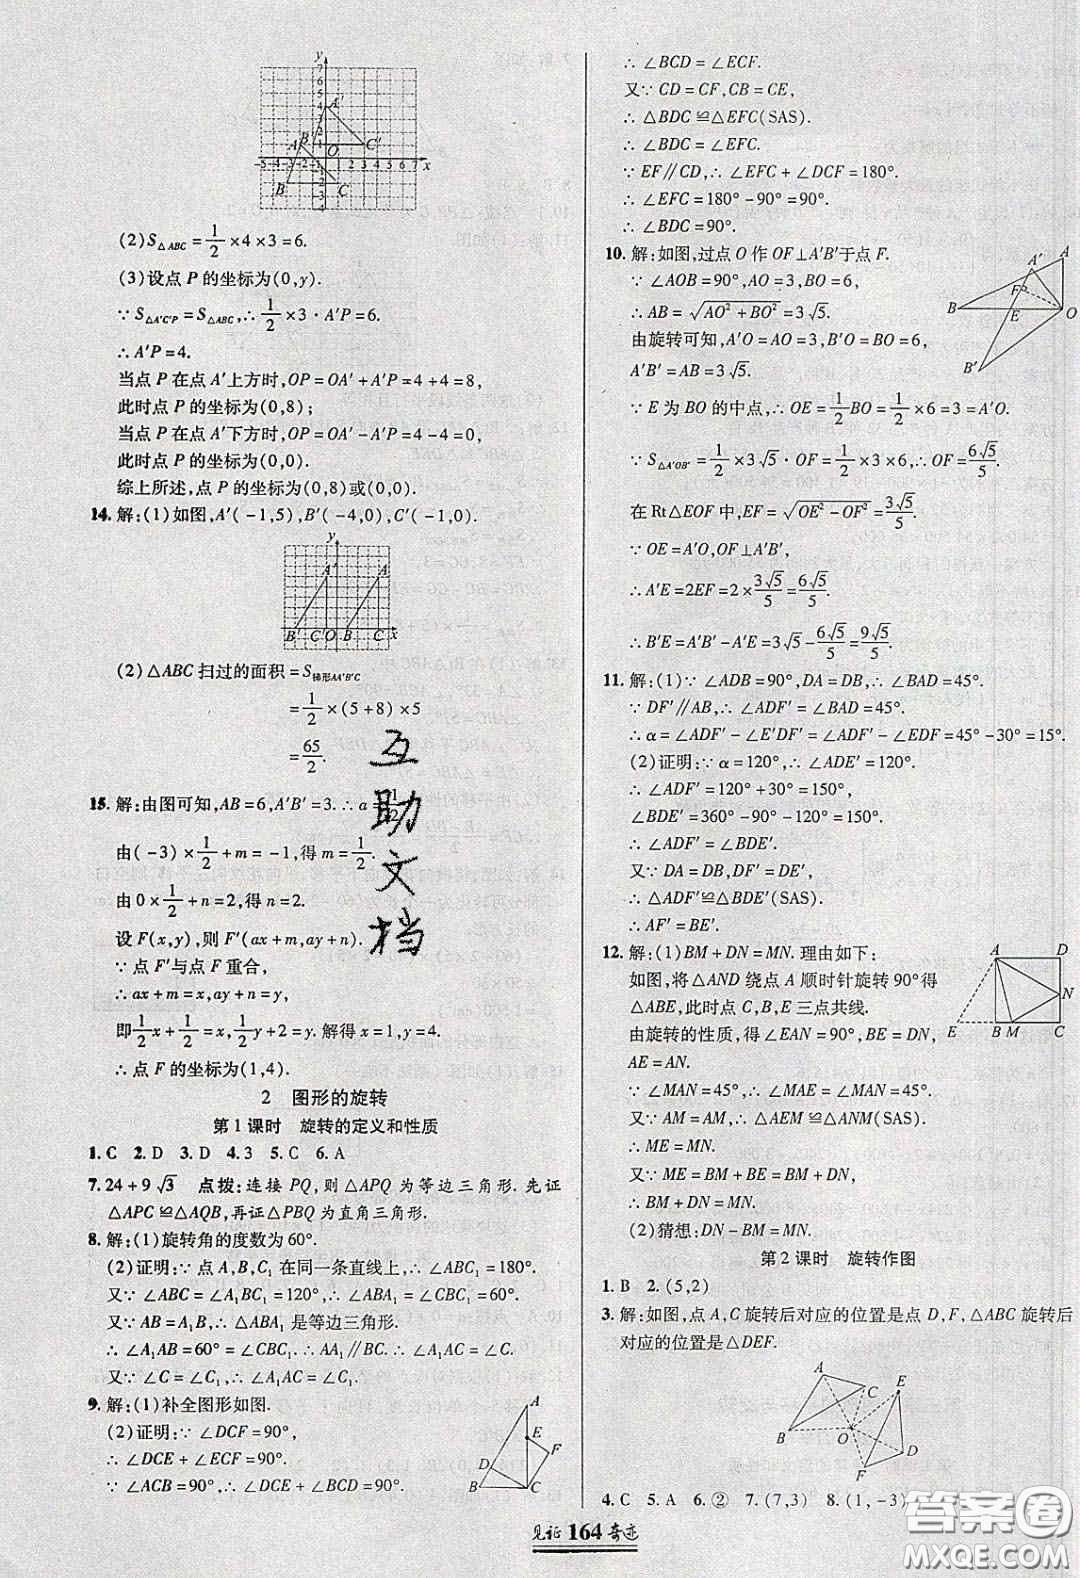 (2)S△ABC=1/2×4×3=6.
(3)设点P的坐标为(0,y).
∵S△A′C′P=S△ABC,∴1/2×3·A′P=6.
∴A′P=4.
当点P在点A′上方时,OP=OA′+A′P=4+4=8,
此时点P的坐标为(0,8);
当点P在点A′下方时,OP=OA′-A′P=4-4=0,
此时点P的坐标为(0,0).
综上所述,点P的坐标为(0,8)或(0,0).
14.解:(1)如图,A′(-1,5),B′(-4,0),C′(-1,0).
(2)△ABC扫过的面积=S梯形AA′B′C
=1/2×(5+8)×5
=65/2.
15.解:由图可知,AB=6,A′B′=3.∴a=1/2.
由(-3)×1/2+m=-1,得m=1/2.
由0×1/2+n=2,得n=2.
设F(x,y),则F′(ax+m,ay+n).
∵点F′与点F重合,
∴ax+m=x,ay+n=y.
即1/2x+1/2=x,1/2y+2=y.解得x=1,y=4.
∴点F的坐标为(1,4).
2 图形的旋转
第1课时 旋转的定义和性质
1.C 2.D 3.D 4.3 5.C 6.A
7.24+9√3 点拨:连接PQ,则△APQ为等边三角形.先证
△APC≌△AQB,再证△PBQ为直角三角形.
8.解:(1)旋转角的度数为60°.
(2)证明:∵点A,B,C₁在同一条直线上,∴∠ABC₁=180°.
又∵∠ABC=∠A₁BC₁=120°,∴∠ABA₁=∠CBC₁=60°.
又∵AB=A₁B,∴△ABA₁是等边三角形.
∴∠A₁AB=60°=∠CBC₁.∴AA₁∥BC.∴∠A₁AC=∠C.
又∵∠C=∠C₁,∴∠A₁AC=∠C₁.
9.解:(1)补全图形如图.
(2)证明:∵∠DCF=90°,
∴∠DCE+∠ECF=90°.
∵∠ACB=90°,∴∠DCE+∠BCD=90°.
∴∠BCD=∠ECF.
又∵CD=CF,CB=CE,
∴△BDC≌△EFC(SAS).
∴∠BDC=∠EFC.
∵EF∥CD,∴∠EFC+∠DCF=180°.
∴∠EFC=180°-90°=90°.
∴∠BDC=90°.
10.解:如图,过点O作OF⊥A′B′于点F.
∵∠AOB=90°,AO=3,BO=6,
∴AB=√(AO²+BO²)=3√5.
由旋转可知,A′O=AO=3,B′O=BO=6,
A′B′=AB=3√5.
∵E为BO的中点,∴OE=1/2BO=1/2×6=3=A′O.
∵S△A′OB′=1/2×3√5·OF=1/2×3×6,∴OF=6√5/5.
在Rt△EOF中,EF=√(OE²-OF²)=3√5/5.
∵OE=A′O,OF⊥A′B′,
∴A′E=2EF=2×3√5/5=6√5/5.
∴B′E=A′B′-A′E=3√5-6√5/5=9√5/5.
11.解:(1)∵∠ADB=90°,DA=DB,∴∠BAD=45°.
∵DF′∥AB,∴∠ADF′=∠BAD=45°.
∴α=∠ADF′-∠E′DF′=∠ADF′-∠EDF=45°-30°=15°.
(2)证明:∵α=120°,∴∠ADE′=120°.
∴∠ADF′=120°+30°=150°,
∠BDE′=360°-90°-120°=150°.
∴∠ADF′=∠BDE′.
又∵DA=DB,DF′=DE′,
∴△ADF′≌△BDE′(SAS).
∴AF′=BE′.
12.解:(1)BM+DN=MN.理由如下:
如图,将△AND绕点A顺时针旋转90°得
△ABE,此时点C,B,E三点共线.
由旋转的性质,得∠EAN=90°,BE=DN,
AE=AN.
∵∠MAN=45°,∴∠MAE=∠MAN=45°.
又∵AM=AM,∴△AEM≌△ANM(SAS).
∴ME=MN.
又∵ME=BM+BE=BM+DN,
∴BM+DN=MN.
(2)猜想:DN-BM=MN.
第2课时 旋转作图
1.B 2.(5,2)
3.解:如图,点A,C旋转后对应的位置是点D,F,△ABC旋转后
对应的位置是△DEF.
4.C 5.A 6.② 7.(7,3) 8.(1,-3)
见证164奇迹
互助文档
答案圈
MXQE.COM